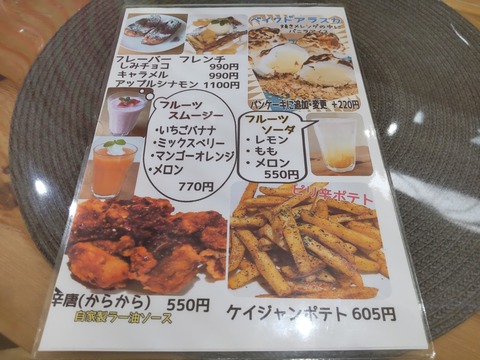 フレーバー フレンチ
しみチョコ 990円
キャラメル 990円
アップルシナモン 1100円
ベイクドアラスカ
焼きメレンゲの中に
バニラアイス
パンケーキに追加・変更 +220円
フルーツ
スムージー
・いちごバナナ
・ミックスベリー
・マンゴーオレンジ
・メロン
770円
フルーツ
ソーダ
・レモン
・もも
・メロン
550円
辛唐(からから) 550円
自家製ラー油ソース
ピリ辛ポテト
ケイジャンポテト 605円